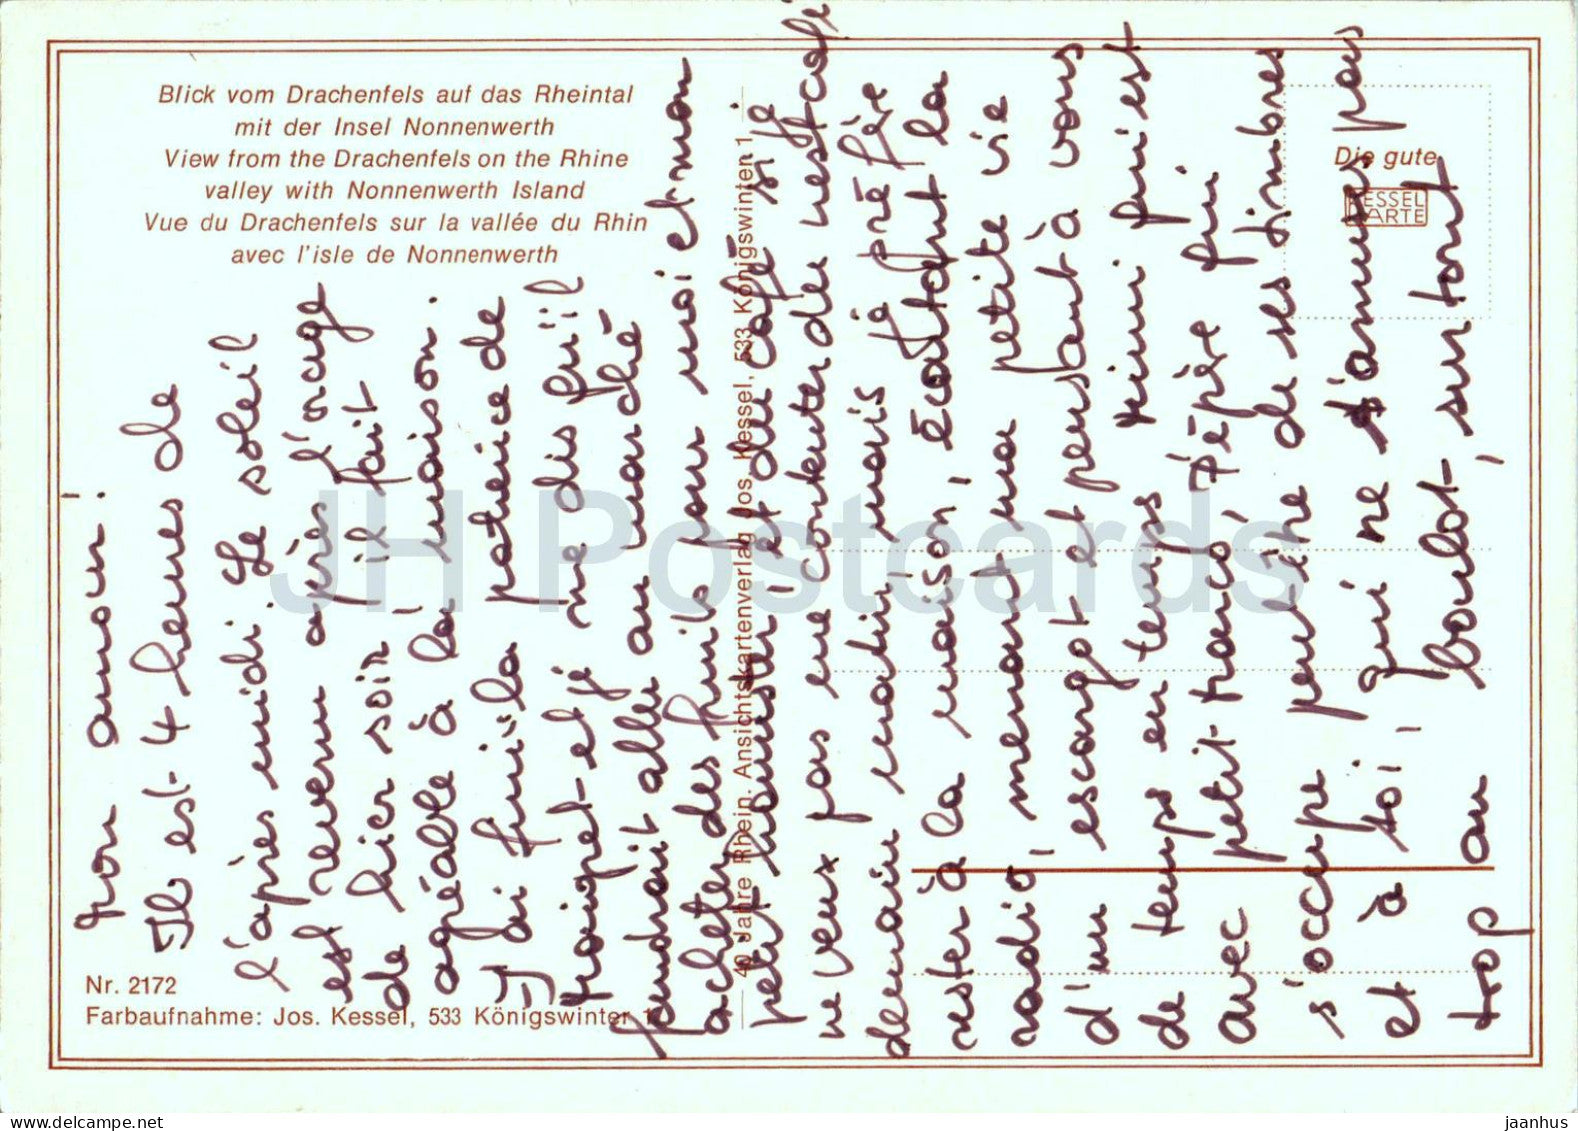 Blick vom Drachenfels auf das Rheintal
mit der Insel Nonnenwerth
View from the Drachenfels on the Rhine
valley with Nonnenwerth Island
Vue du Drachenfels sur la vallée du Rhin
avec l'isle de Nonnenwerth
Die gute
KESSEL
KARTE
Nr. 2172
Farbaufnahme: Jos. Kessel, 533 Königswinter 1
40 Jahre Rhein. Ansichtskartenverlag Jos. Kessel, 533 Königswinten 1
Mon amour:
Il est 4 heures de
l'après midi. Le soleil
est revenu après l'orage
de hier soir, il fait
agréable à la maison.
J'ai fini la patience de
et je me dis qu'il
faudrait aller au marché
acheter des fruits pour moi et mon
petit et du café si je
ne veux pas me contenter de nescafé
demain matin, mais je préfère
rester à la maison, écoutant la
radio, menant ma petite vie
d'un escargot et pensant à vous
de temps en temps, Mimi qui est
avec petit Marco, Pépère qui
s'occupe peut être de ses timbres
et à toi, qui ne t'amuses pas
trop au boulot, surtout
JH Postcards
jaanhus